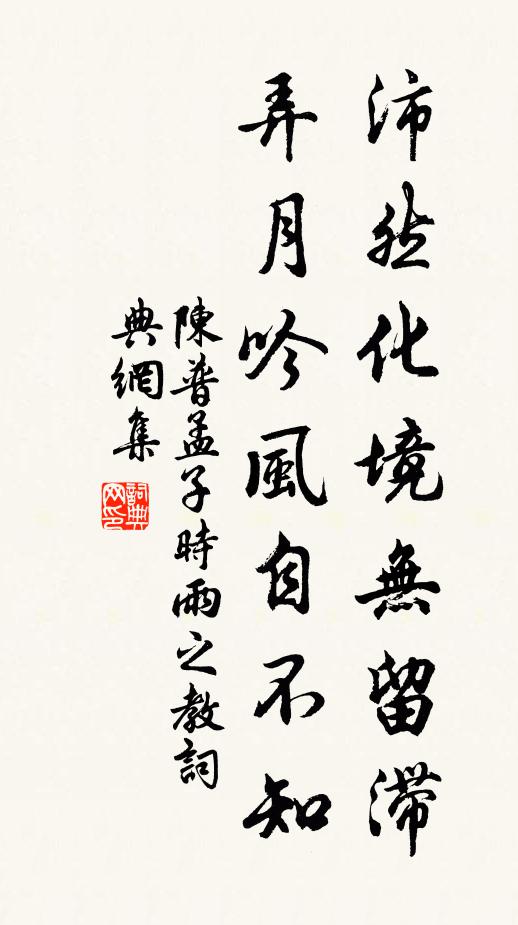 沛然化境無留滯
弄月吟風自不知
陳普孟子時雨之教詞
典網集
詞典
网印